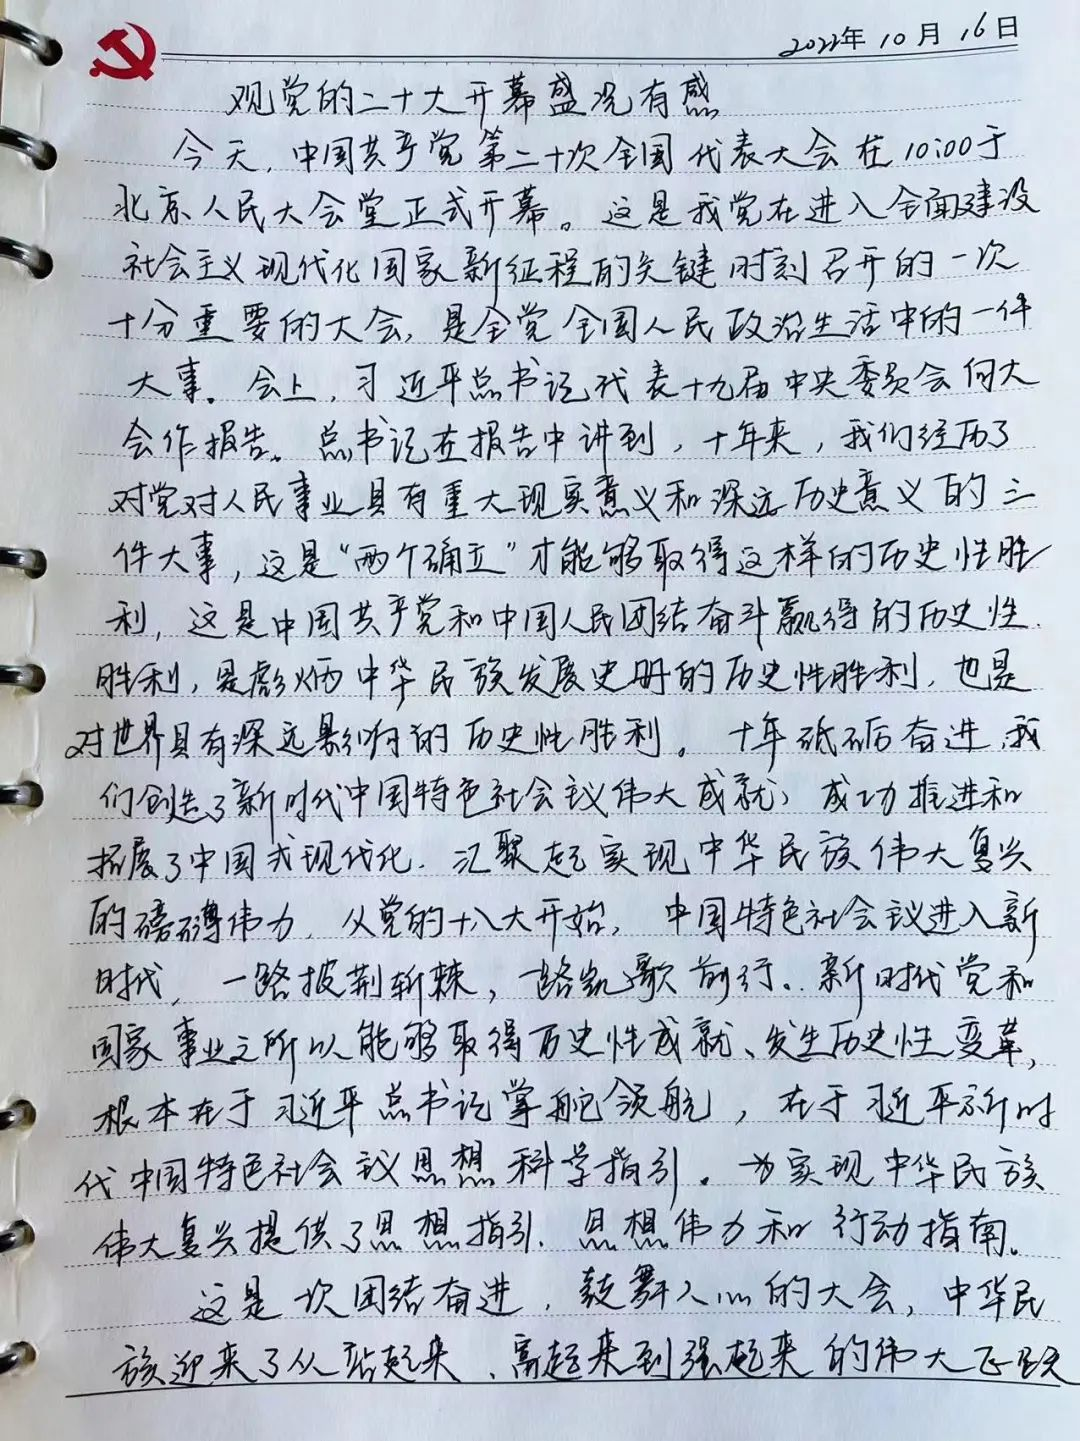 2022年10月16日
观党的二十大开幕盛况有感
今天，中国共产党第二十次全国代表大会在10:00于
北京人民大会堂正式开幕。这是我党在进入全面建设
社会主义现代化国家新征程的关键时刻召开的一次
十分重要的大会，是全党全国人民政治生活中的一件
大事。会上，习近平总书记代表十九届中央委员会向大
会作报告。总书记在报告中讲到，十年来，我们经历了
对党对人民事业具有重大现实意义和深远历史意义的三
件大事，这是“两个确立”才能够取得这样的历史性胜
利，这是中国共产党和中国人民团结奋斗赢得的历史性
胜利，是彪炳中华民族发展史册的历史性胜利，也是
对世界具有深远影响的历史性胜利。十年砥砺奋进，我
们创造了新时代中国特色社会主议伟大成就，成功推进和
拓展了中国式现代化，汇聚起实现中华民族伟大复兴
的磅礴伟力，从党的十八大开始，中国特色社会议进入新
时代，一路披荆斩棘，一路凯歌前行。新时代党和
国家事业之所以能够取得历史性成就、发生历史性变革，
根本在于习近平总书记掌舵领航，在于习近平新时
代中国特色社会主议思想科学指引。为实现中华民族
伟大复兴提供了思想指引、思想伟力和行动指南。
这是一次团结奋进，鼓舞人心的大会，中华民
族迎来了从站起来、富起来到强起来的伟大飞跃